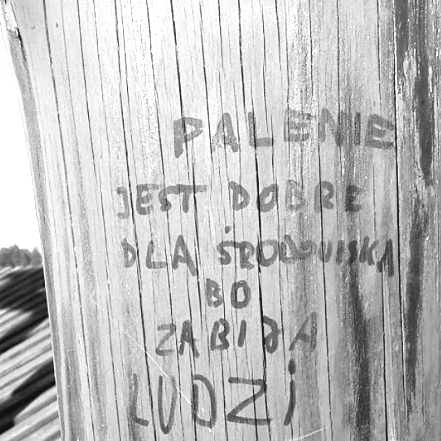 PALENIE
JEST DOBRE
DLA ŚRODOWISKA
BO
ZABIJA
LUDZI